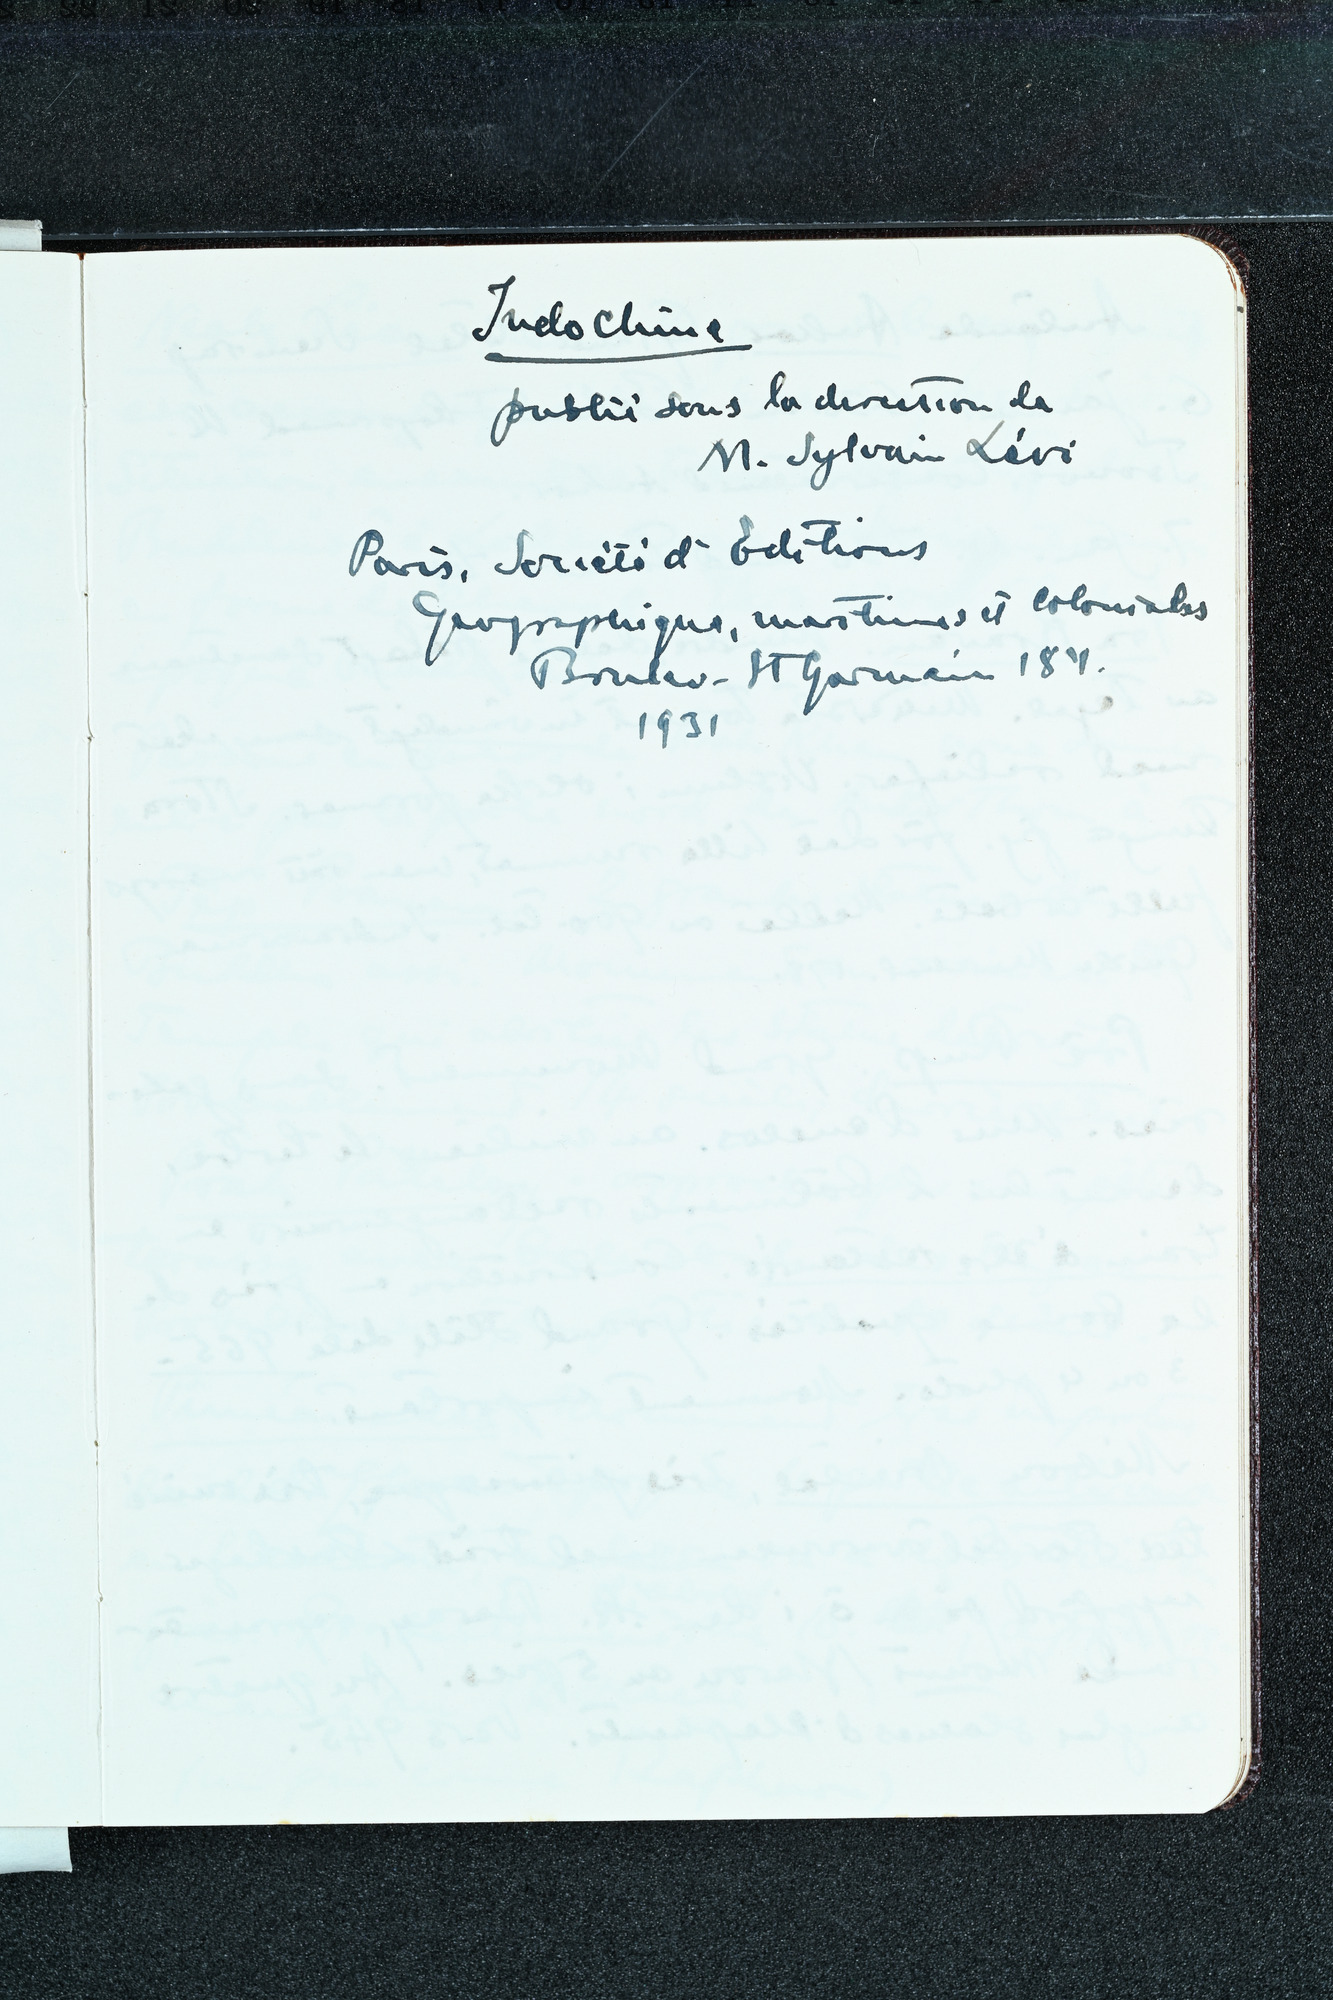 Indochine
publié sous la direction de
M. Sylvain Lévi
Paris, Société d'Editions
Geographique, maritimes et coloniales
Boulev. St Germain 184.
1931